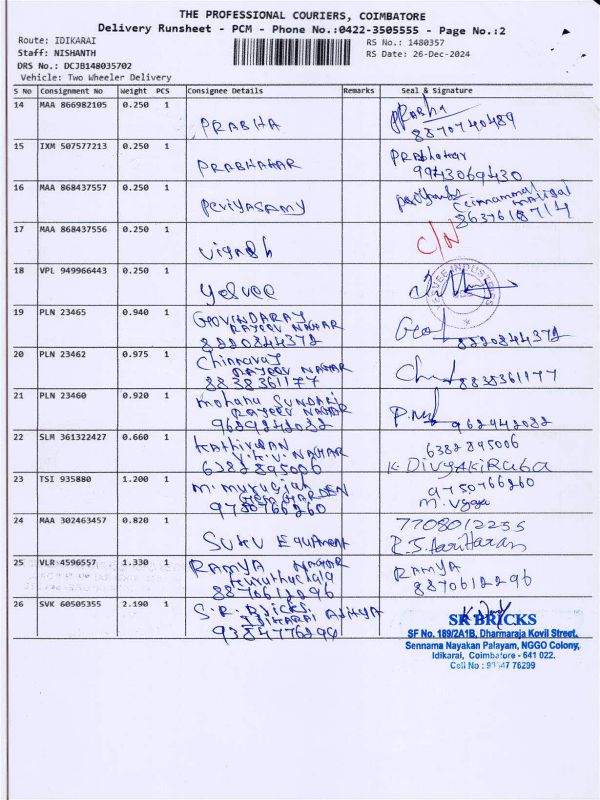 THE PROFESSIONAL COURIERS, COIMBATORE
Delivery Runsheet - PCM - Phone No.:0422-3505555 - Page No.:2
Route: IDIKARAI
RS No.: 1480357
Staff: NISHANTH
RS Date: 26-Dec-2024
DRS No.: DCJB148035702
Vehicle: Two Wheeler Delivery
S No Consignment No Weight PCS Consignee Details Remarks Seal & Signature
14 MAA 866982105 0.250 1
PRABHA PRabha
8870740489
15 IXM 507577213 0.250 1
PRABHAHAR PRabhakar
9943069430
16 MAA 868437557 0.250 1
Periyasamy
8637618714
17 MAA 868437556 0.250 1
Vignesh C/N
18 VPL 949966443 0.250 1
Yesvee
19 PLN 23465 0.940 1
GOVINDARAJ
RAJEEV NAGAR
8220844372 8220844372
20 PLN 23462 0.975 1
Chinnaraj
RAJEEV NAGAR
8838361177 8838361177
21 PLN 23460 0.920 1
Mohana SUNDARI
RAJEEV NAGAR
9629242082 9629442082
22 SLM 361322427 0.660 1
KATHIRVAN 6382895006
V.K.V. NAGAR K. DIVYAKIRUBA
6382895006
23 TSI 935880 1.200 1
M. Murugiah 9750766260
9750766260
24 MAA 302463457 0.820 1
7708012255
R.S. Hariharan
25 VLR 4596557 1.330 1
RAMYA NAGAR RAMYA
8870612296 8870612296
26 SVK 60505355 2.190 1
S.R. BRICKS
IDIKARAI
9384776299
SR BRICKS
SF No. 189/2A1B, Dharmaraja Kovil Street,
Sennama Nayakan Palayam, NGGO Colony,
Idikarai, Coimbatore - 641 022.
Cell No : 93847 76299